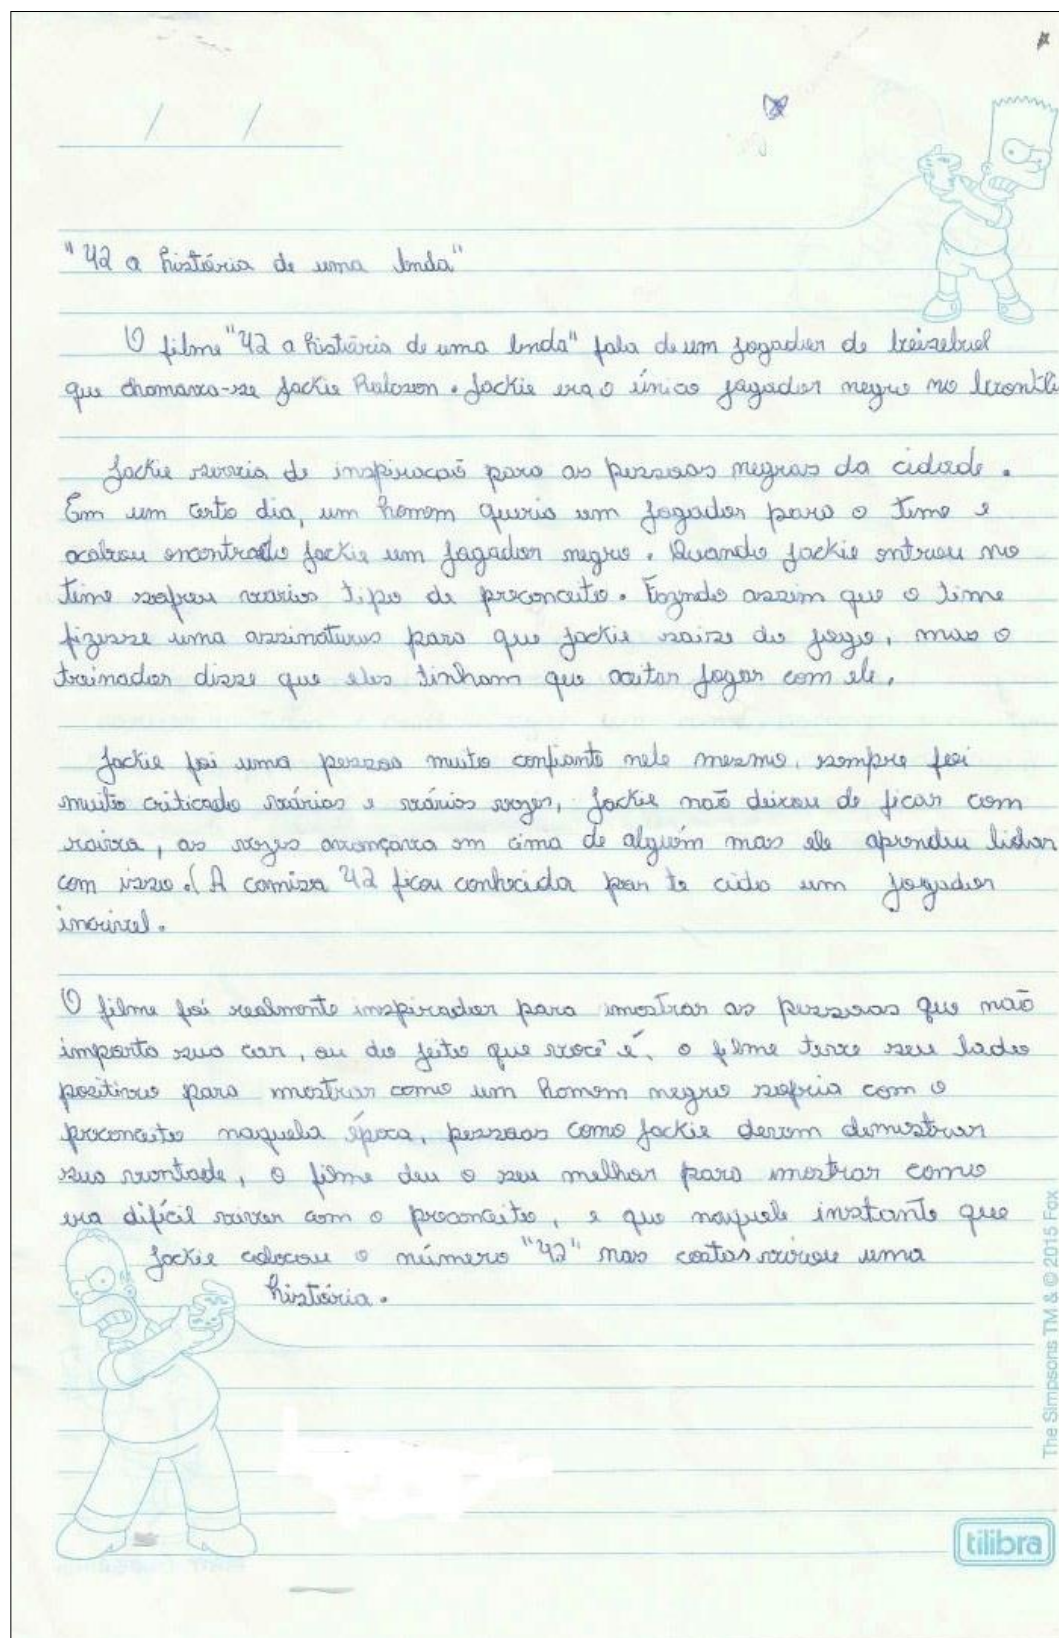 "42 a história de uma lenda"
O filme "42 a história de uma lenda" fala de um jogador de beisebol
que chamava-se Jackie Robson. Jackie era o único jogador negro no
Jackie servia de inspiração para as pessoas negras da cidade.
Em um certo dia, um homem queria um jogador para o time e
acabou encontrado Jackie um jogador negro. Quando Jackie entrou no
time sofreu vários tipo de preconceito. Fazendo assim que o time
fizesse uma assinaturas para que Jackie saise do jogo, mas o
treinador disse que eles tinham que aceitar jogar com ele,
Jackie foi uma pessoa muito confiante nele mesmo, sempre foi
muito criticado várias e várias vezes, Jackie não deixou de ficar com
raiva, as vezes avançava em cima de alguém mas ele aprendeu lidar
com isso. (A camisa 42 ficou conhecida por te cido um jogador
incrivel.
O filme foi realmente inspirador para mostrar as pessoas que não
importa sua cor, ou do jeito que você é, o filme teve seu lado
positivo para mostrar como um homem negro sofria com o
preconceito naquela época, pessoas como Jackie devem demostrar
sua vontade, o filme deu o seu melhor para mostrar como
era difícil viver com o preconceito, e que naquele instante que
Jackie colocou o número "42" nas costas virou uma
história.
The Simpsons TM & © 2015 Fox
tilibra